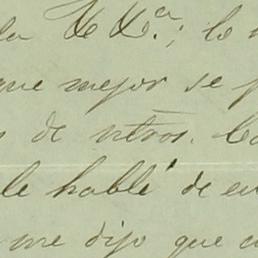 la X X.ª; lo
que mejor se
de ntros. Co
le hablé de en
me dijo que